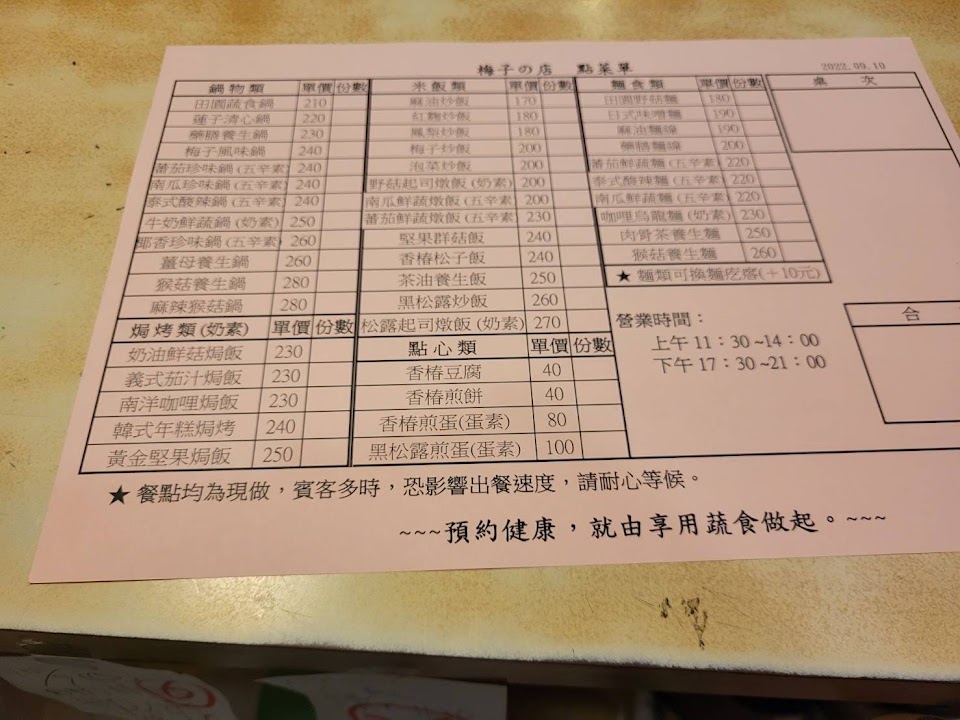 梅子の店 點菜單 2022.09.10
鍋物類 單價 份數
田園蔬食鍋 210
蓮子清心鍋 220
藥膳養生鍋 230
梅子風味鍋 240
蕃茄珍味鍋(五辛素) 240
南瓜珍味鍋(五辛素) 240
泰式酸辣鍋(五辛素) 240
牛奶鮮蔬鍋(奶素) 250
椰香珍味鍋(五辛素) 260
薑母養生鍋 260
猴菇養生鍋 280
麻辣猴菇鍋 280
焗烤類(奶素) 單價 份數
奶油鮮菇焗飯 230
義式茄汁焗飯 230
南洋咖哩焗飯 230
韓式年糕焗烤 240
黃金堅果焗飯 250
米飯類 單價 份數
麻油炒飯 170
紅麴炒飯 180
鳳梨炒飯 180
梅子炒飯 200
泡菜炒飯 200
野菇起司燉飯(奶素) 200
南瓜鮮蔬燉飯(五辛素 200
蕃茄鮮蔬燉飯(五辛素 230
堅果群菇飯 240
香椿松子飯 240
茶油養生飯 250
黑松露炒飯 260
松露起司燉飯(奶素) 270
點心類 單價 份數
香椿豆腐 40
香椿煎餅 40
香椿煎蛋(蛋素) 80
黑松露煎蛋(蛋素) 100
麵食類 單價 份數
田園野菇麵 180
日式味噌麵 190
麻油麵線 190
藥膳麵線 200
蕃茄鮮蔬麵(五辛素) 220
泰式酸辣麵(五辛素) 220
南瓜鮮蔬麵(五辛素) 220
咖哩烏龍麵(奶素) 230
肉骨茶養生麵 250
猴菇養生麵 260
★麵類可換麵疙瘩(+10元)
桌 次
合
營業時間：
上午 11：30~14：00
下午 17：30~21：00
★餐點均為現做，賓客多時，恐影響出餐速度，請耐心等候。
~~~預約健康，就由享用蔬食做起。~~~